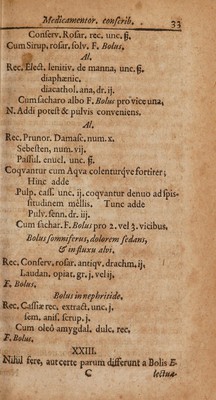 Medicamentor. conscrib. 33
Conserv. Rosar. rec. unc. ß.
Cum Sirup. rosar. solv. F. Bolus,
Al.
Rec. Elect. lenitiv. de manna, unc. ß.
diaphœnic,
diacathol. ana, dr. ij.
Cum sacharo albo F. Bolus pro vice una,
N. Addi potest & pulvis conveniens.
Al.
Rec. Prunor. Damasc. num. x.
Sebesten, num. vij.
Passul. enucl. unc. ß.
Coqvantur cum Aqva colenturqve fortiter;
Hinc adde
Pulp. cass. unc. ij. coqvantur denuo ad spis-
situdinem mellis. Tunc adde
Pulv. senn. dr. iij.
Cum sachar. F. Bolus pro 2. vel 3. vicibus.
Bolus somniferus, dolorem sedans,
& in fluxu alvi.
Rec. Conserv. rosar. antiqv. drachm. ij,
Laudan. opiat. gr. j. vel ij,
F. Bolus,
Bolus in nephritide.
Rec. Cassiæ rec. extract. unc. j.
sem. anis. scrup. j.
Cum oleô amygdal. dulc. rec.
F. Bolus.
XXIII.
Nihil fere, aut certe parum differunt a Bolis E-
C lectua-